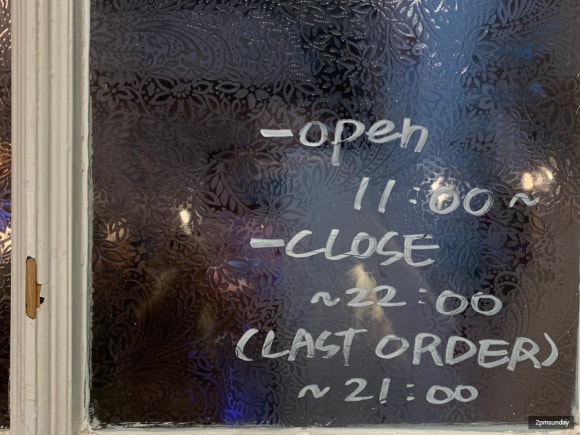 -open
11:00~
-CLOSE
~22:00
(LAST ORDER)
~21:00
2pmsunday